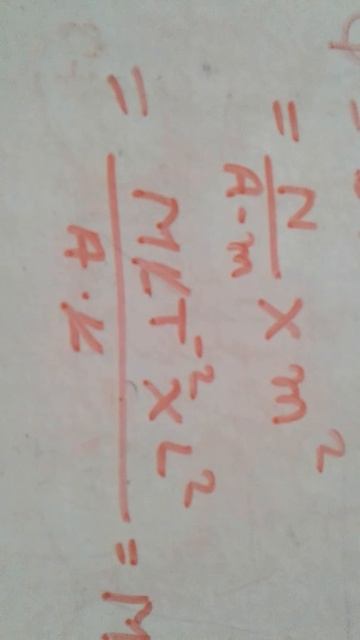 = N
A·m
× m²
= MLT⁻² × L²
A·L
= M